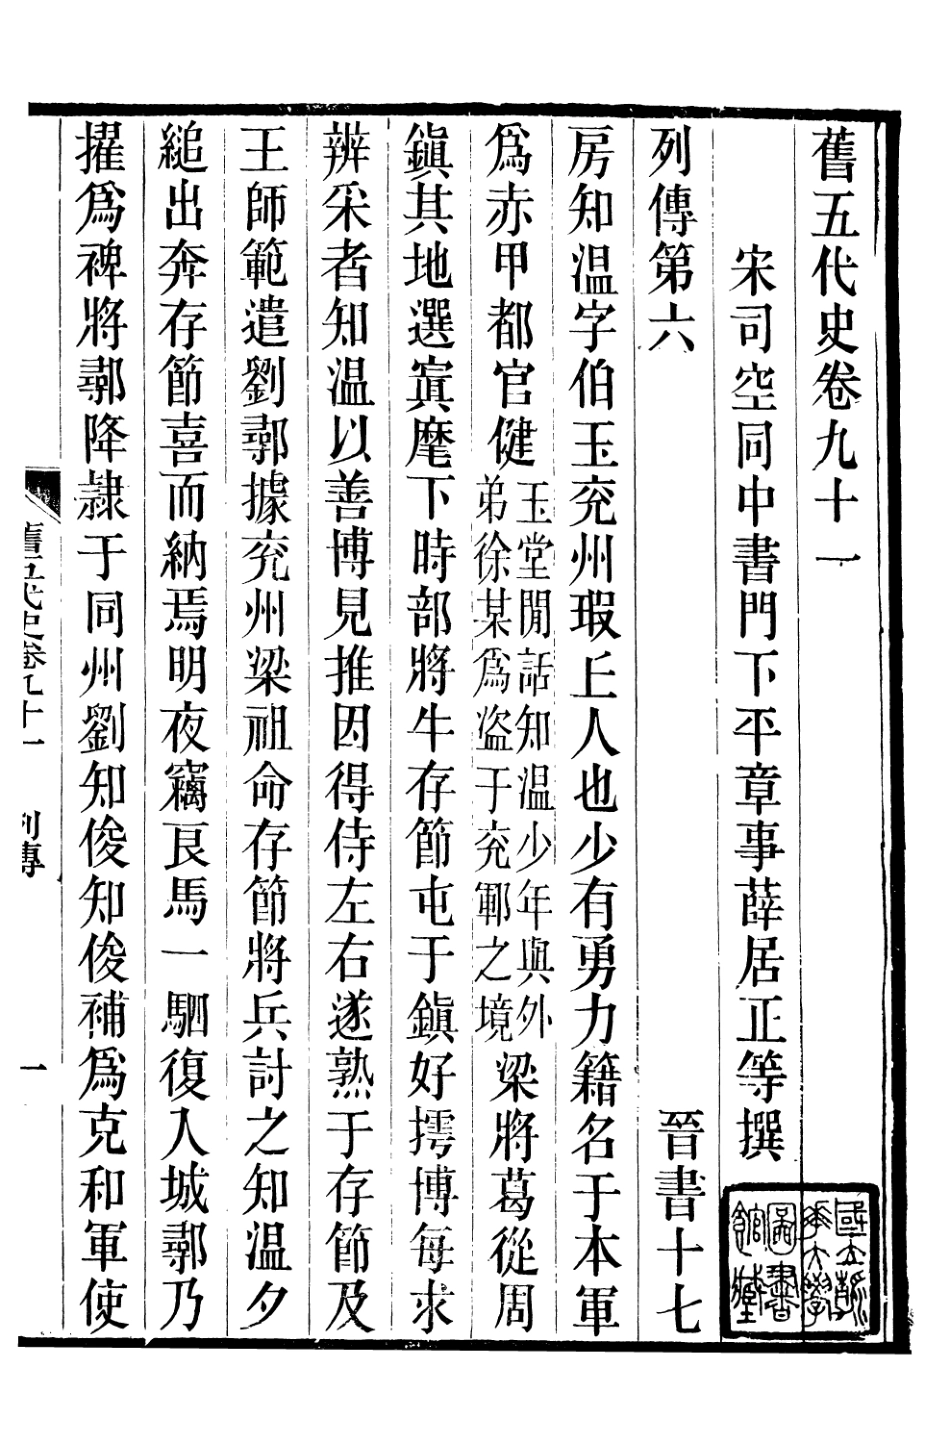 舊五代史卷九十一
宋司空同中書門下平章事薛居正等撰
列傳第六 晉書十七
房知温字伯玉兖州瑕丘人也少有勇力籍名于本軍
爲赤甲都官健
玉堂閒話知温少年與外
弟徐某爲盗于兖鄆之境
梁將葛從周
鎭其地選寘麾下時部將牛存節屯于鎭好摴博每求
辨采者知温以善博見推因得侍左右遂熟于存節及
王師範遣劉鄩據兖州梁祖命存節將兵討之知温夕
縋出奔存節喜而納焉明夜竊良馬一駟復入城鄩乃
擢爲裨將鄩降隷于同州劉知俊知俊補爲克和軍使
舊五代史卷九十一 列傳 一